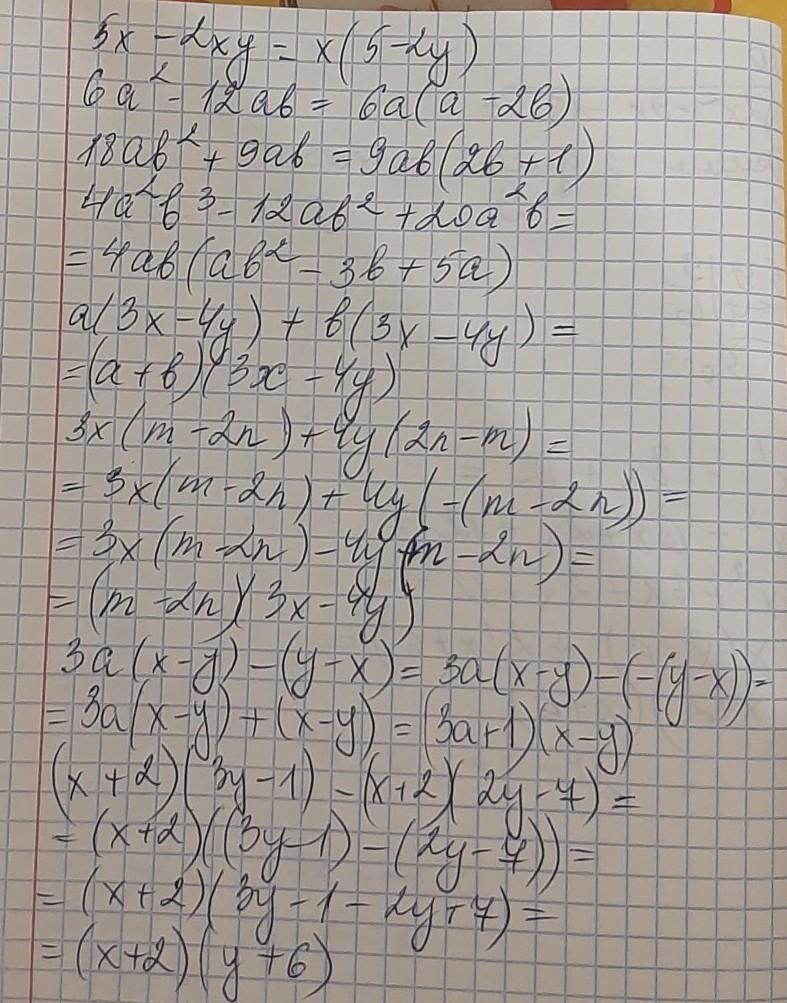 5x - 2xy = x(5-2y)
6a² - 12ab = 6a(a - 2b)
18ab² + 9ab = 9ab(2b + 1)
4a²b³ - 12ab² + 20a²b =
= 4ab(ab² - 3b + 5a)
a(3x - 4y) + b(3x - 4y) =
= (a + b)(3x - 4y)
3x(m - 2n) + 4y(2n - m) =
= 3x(m - 2n) + 4y(-(m - 2n)) =
= 3x(m - 2n) - 4y(m - 2n) =
= (m - 2n)(3x - 4y)
3a(x-y) - (y-x) = 3a(x-y) - (-(y-x)) =
= 3a(x-y) + (x-y) = (3a+1)(x-y)
(x + 2)(3y - 1) - (x+2)(2y - 7) =
= (x+2)((3y-1) - (2y-7)) =
= (x+2)(3y - 1 - 2y + 7) =
= (x+2)(y + 6)